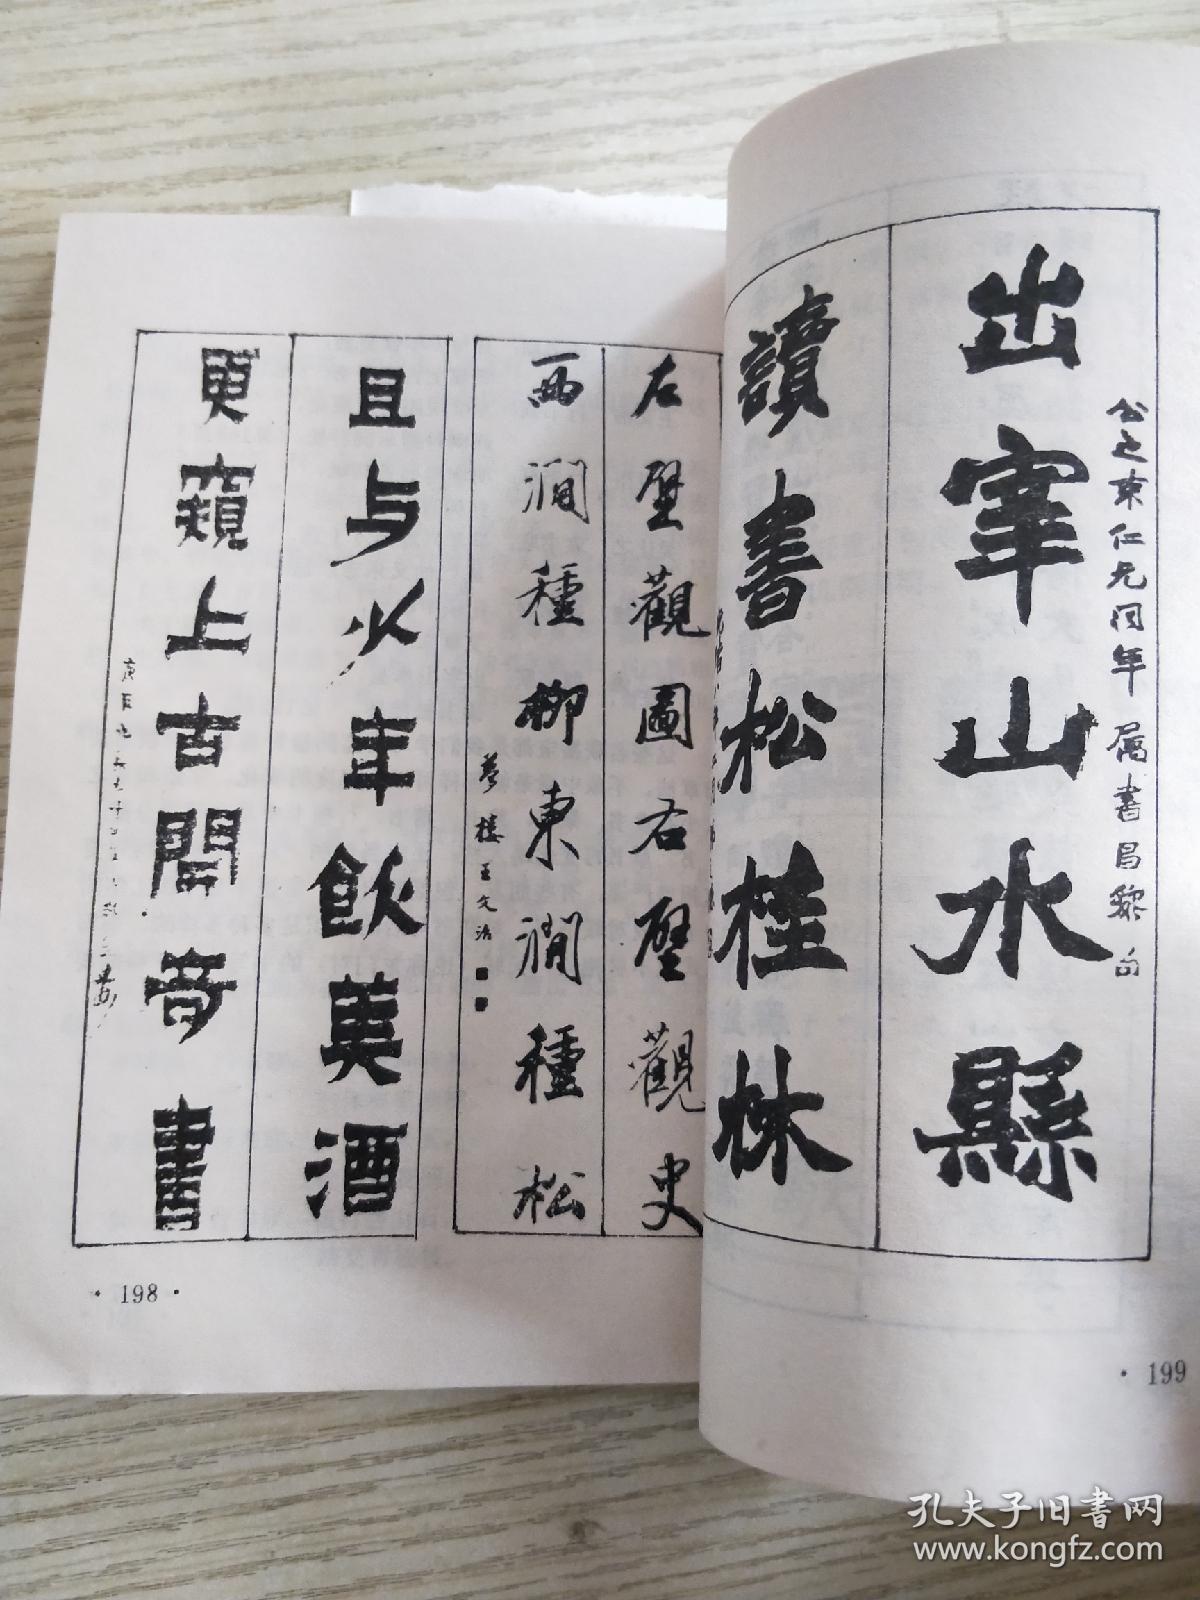 出宰山水縣
公之東仁兄同年 属書昌黎句
讀書松桂林
· 199
左壁觀圖右壁觀史
西澗種柳東澗種松
夢樓王文治
且与少年飲美酒
更窺上古開奇書
· 198 ·
孔夫子旧书网
www.kongfz.com